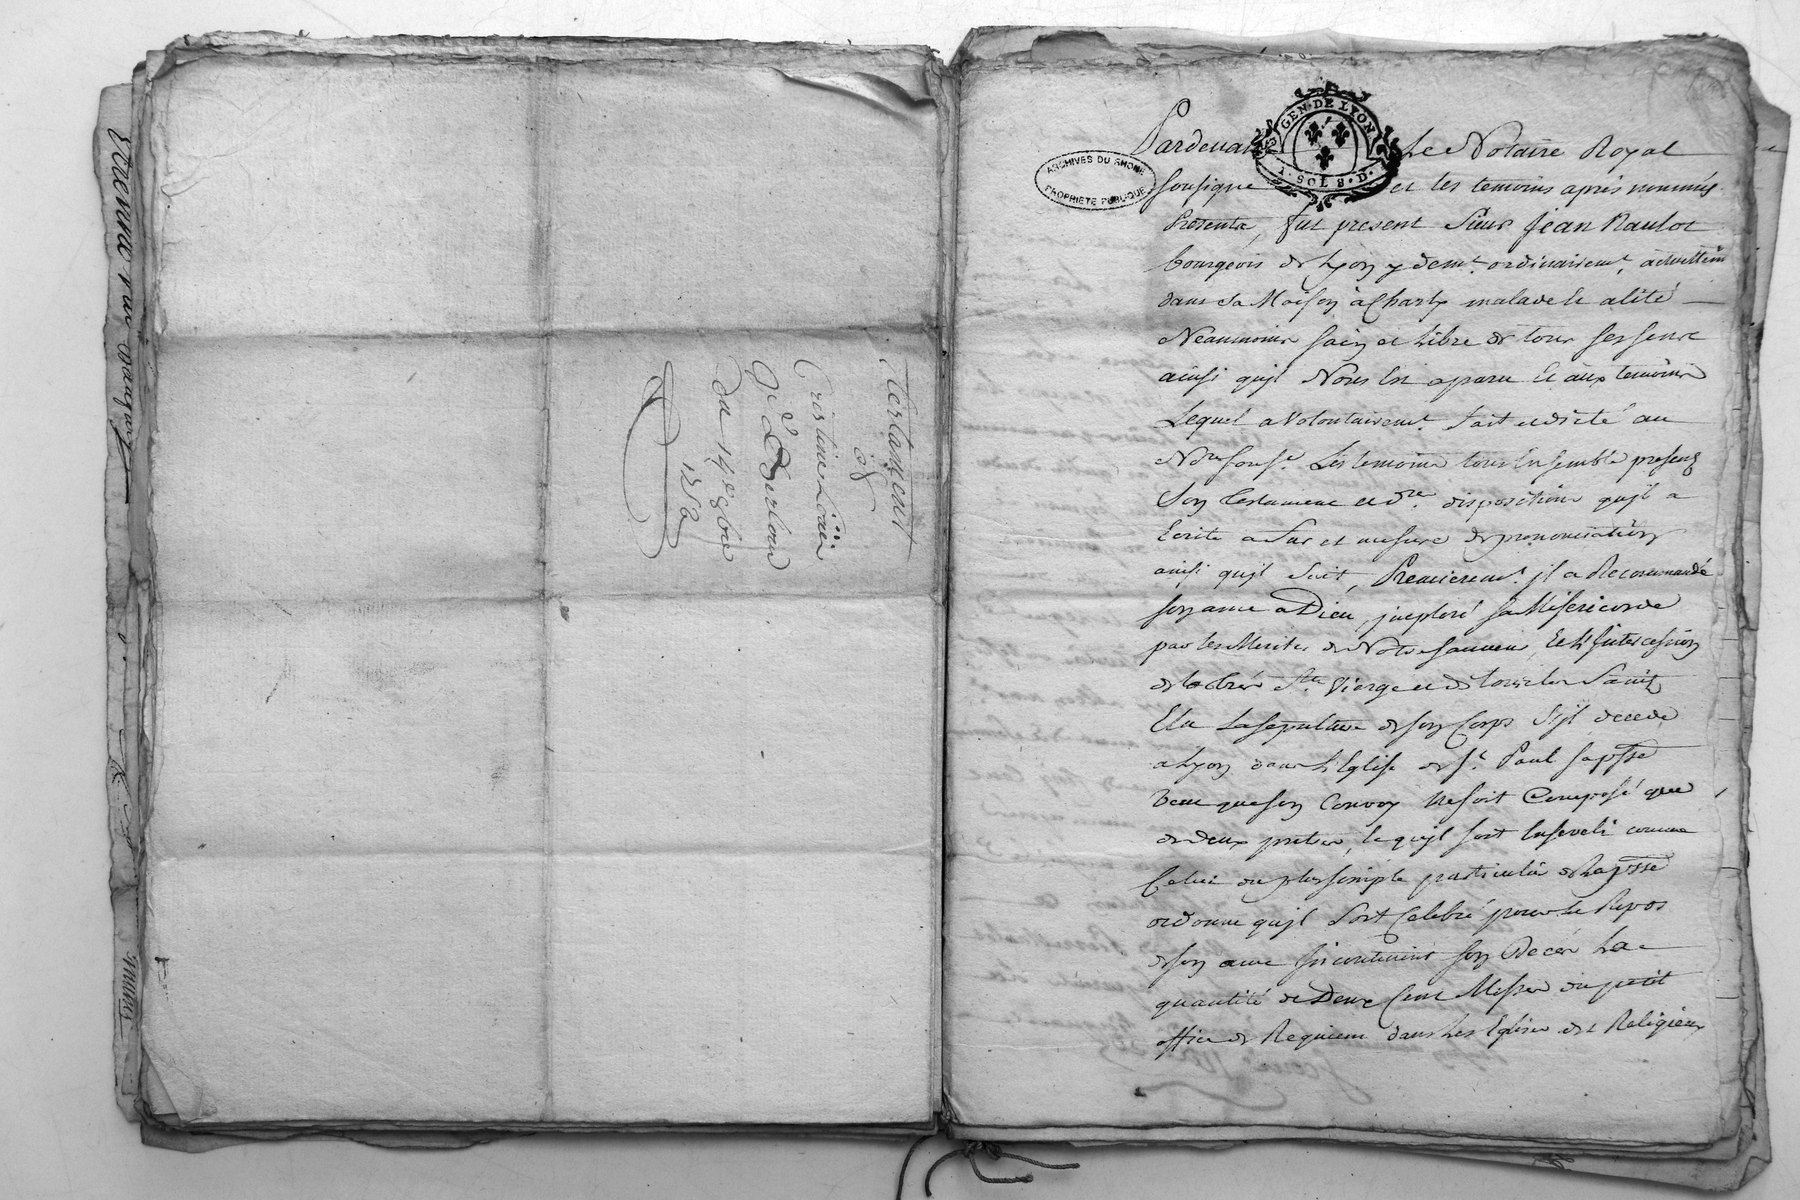 Testament
de
Cristine Loüis
du 14e 8bre
1752
GEN·DE LYON
1·SOLS·D.
ARCHIVES DU RHONE
PROPRIETE PUBLIQUE
Pardevant Le Notaire Royal
sousigné et les temoins après nommés
Presents, fut present Sieur Jean Raulot
bourgeois de Lyon y demt. ordinairemt. actuellemt
dans sa Maison à Charly malade et alité
Neanmoins sain et Libre de tous ses sens
ainsi qu'jl Nous est aparu et aux temoins
Lequel a Volontairemt. fait et dicté au
Nore sousé. Les temoins tous Ensemble presens
son testament et dre. disposition qu'jl a
Ecrite a fur et mesure de prononciation
ainsi qu'jl suit, Premieremt. jl a Recommandé
son ame a Dieu, jmploré sa Misericorde
par les Merites de Notre Sauveur, et L'Intercession
de la très Ste. Vierge et de tous les Saints
Elu La sepulture de son Corps s'jl decede
a Lyon dans L'Eglise de St. Paul sa psse
Veut que son Convoy ne soit Composé que
de deux pretres, et qu'jl soit Enseveli comme
Celui du plus simple particulier de la psse
ordonne qu'jl soit Celebré pour le Repos
de son ame jncontinent son Decès La
quantité de Deux Cent Messes du petit
office de Requiem dans Les Eglises des Religieux